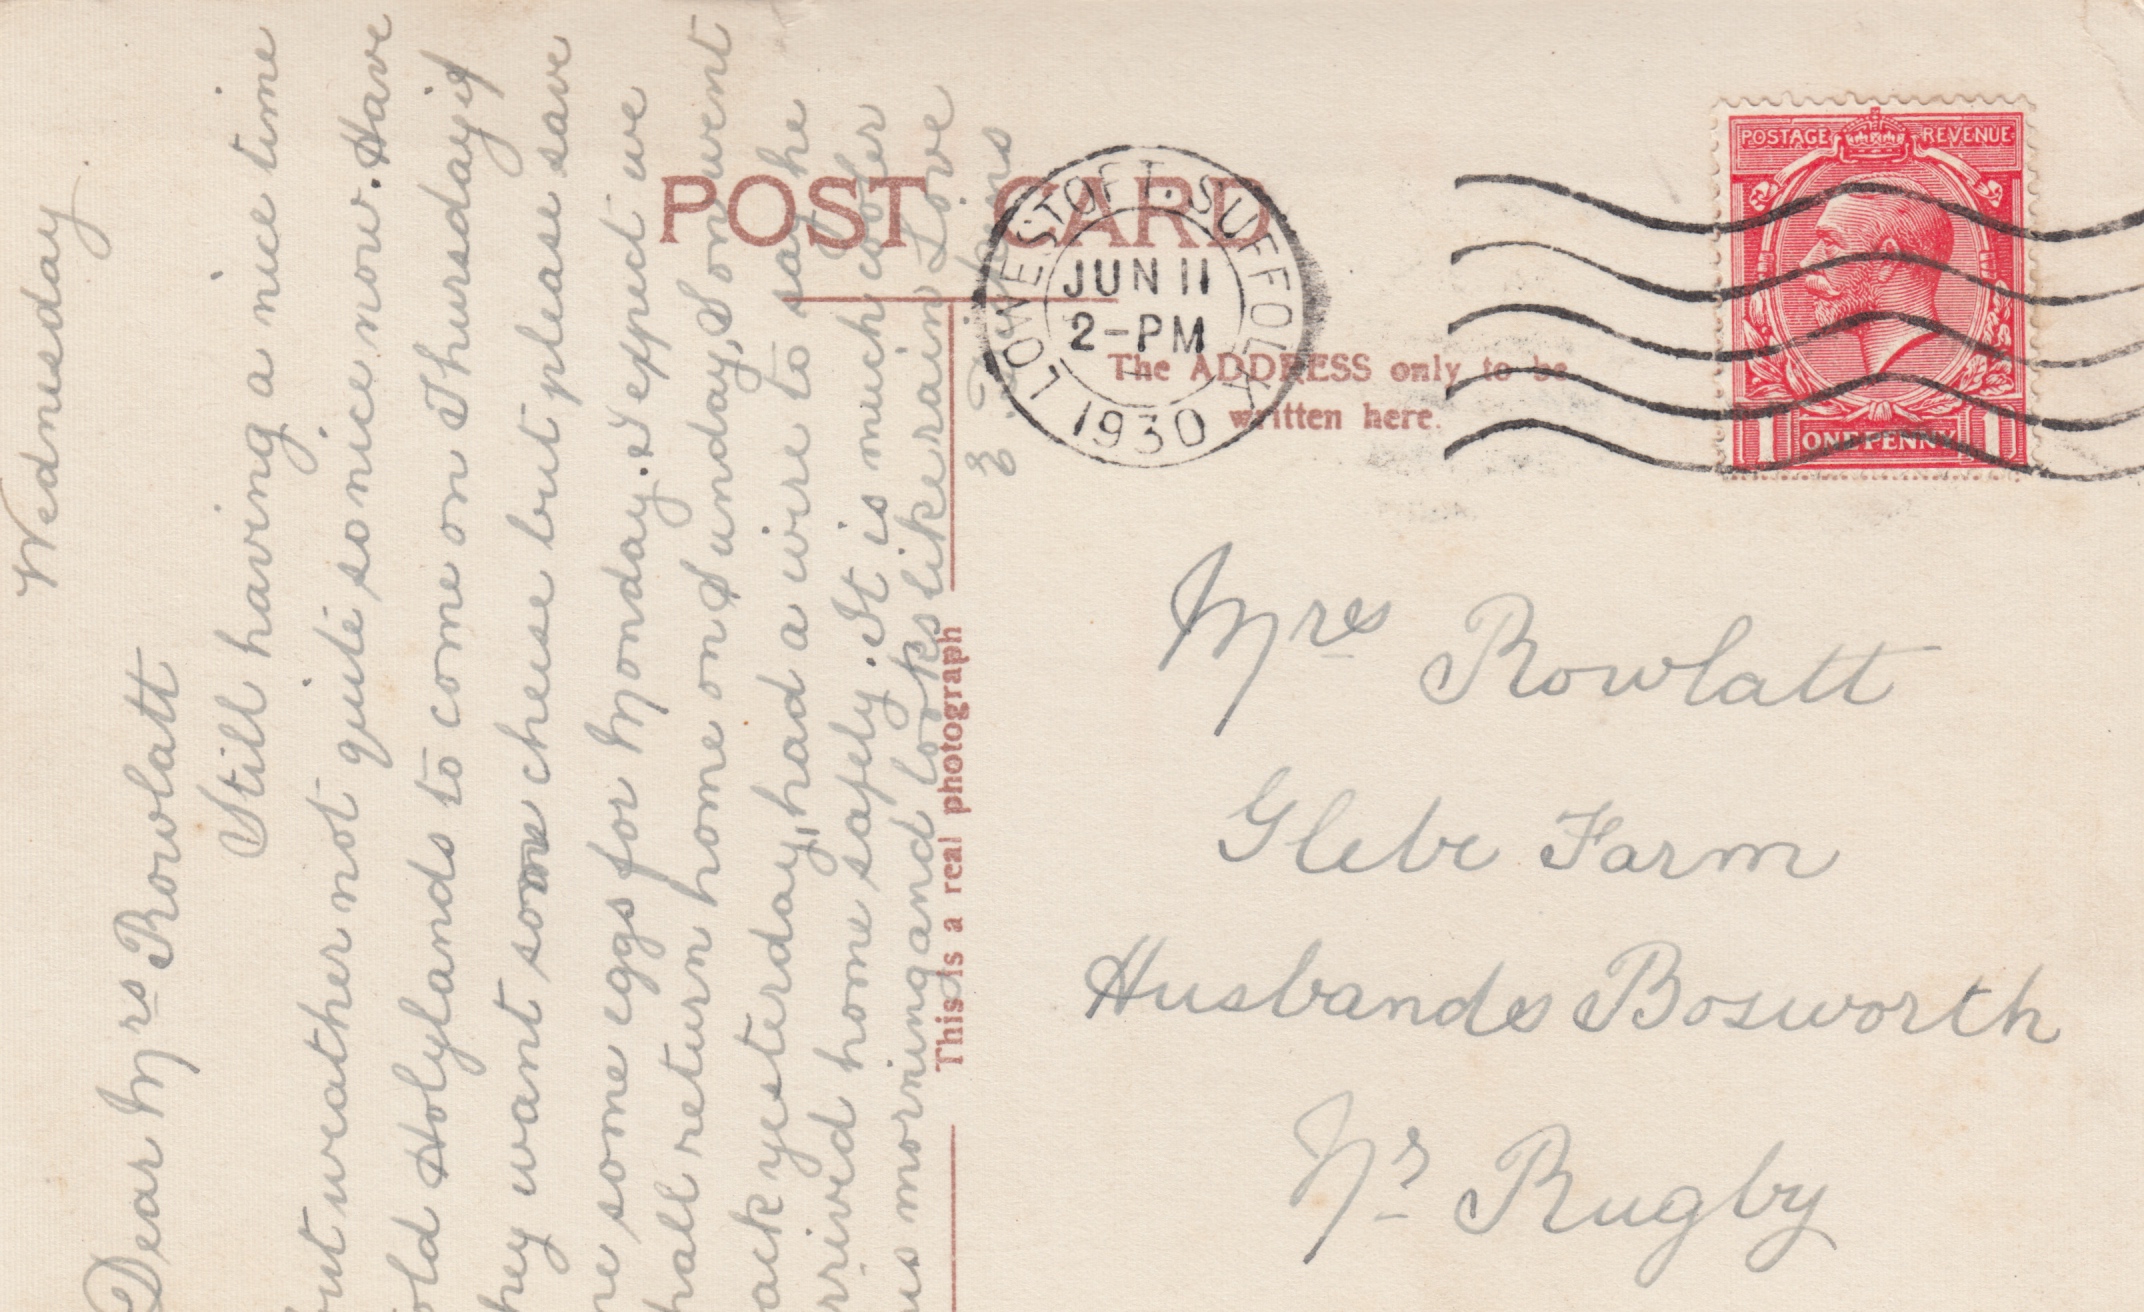 Wednesday
Dear Mrs Rowlatt
Still having a nice time
but weather not quite so nice now. Have
old Holylands to come on Thursday if
hey want some cheese but please save
ne some eggs for Monday. I expect we
hall return home on Sunday, Son went
ack yesterday, had a wire to say he
rrived home safely. It is much cooler
us morning and looks like rain Love
E.
POST CARD
This is a real photograph
The ADDRESS only to be
written here.
LOWESTOFT. SUFFOLK
JUN 11
2-PM
1930
POSTAGE REVENUE
1 ONE PENNY 1
Mrs Rowlatt
Glebe Farm
Husbands Bosworth
Nr Rugby